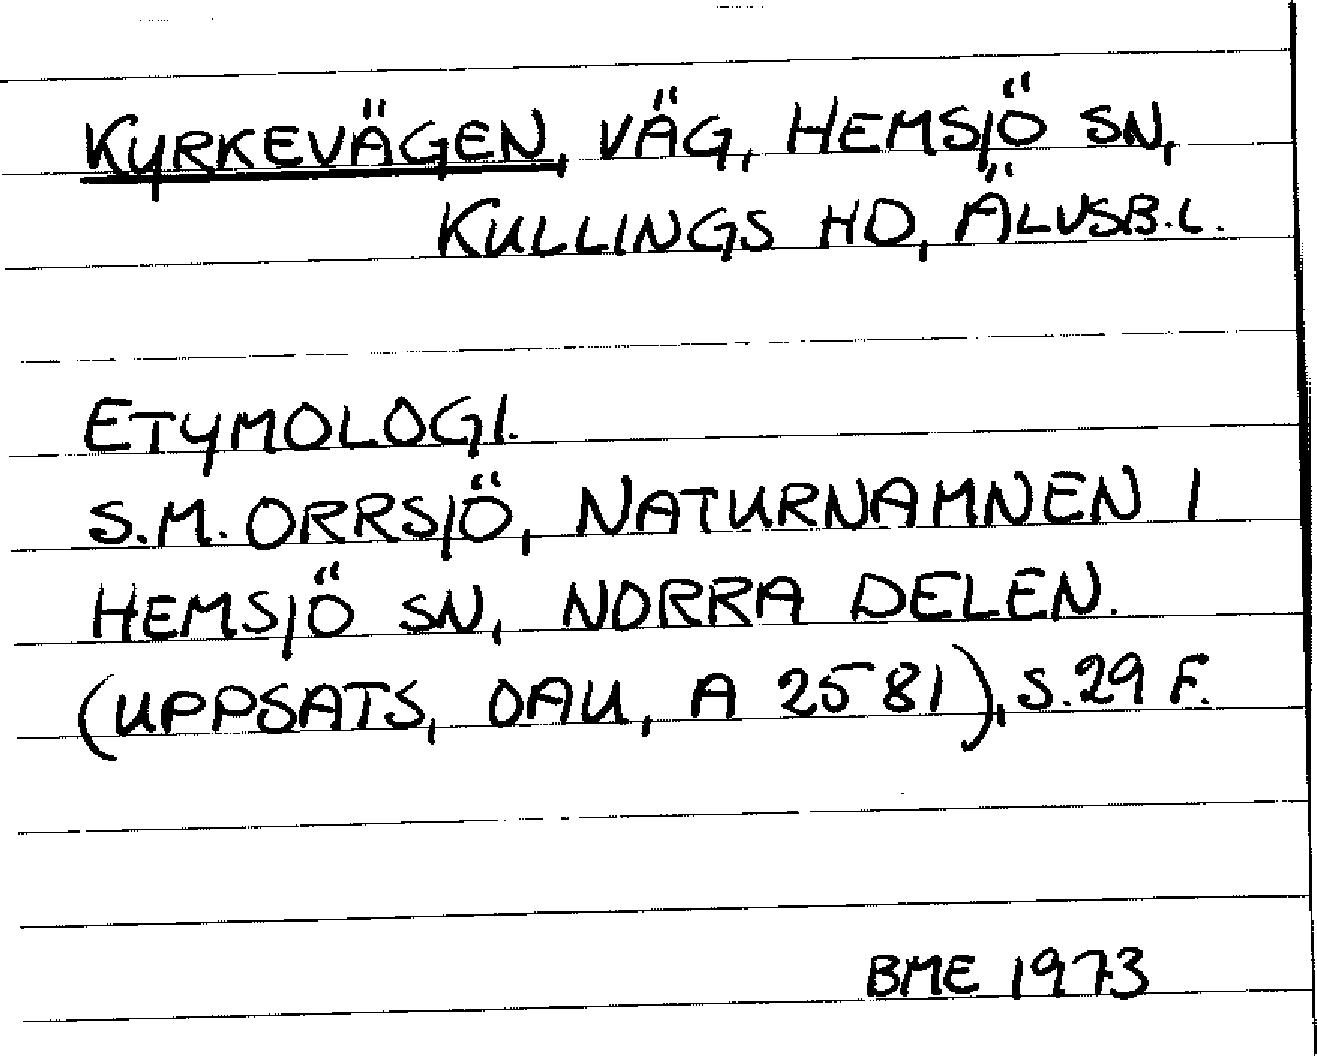 KYRKEVÄGEN, VÄG, HEMSJÖ SN,
KULLINGS HD, ÄLVSB.L.
ETYMOLOGI.
S.M. ORRSJÖ, NATURNAMNEN I
HEMSJÖ SN, NORRA DELEN.
(UPPSATS, OAU, A 2581), S.29 F.
BME 1973